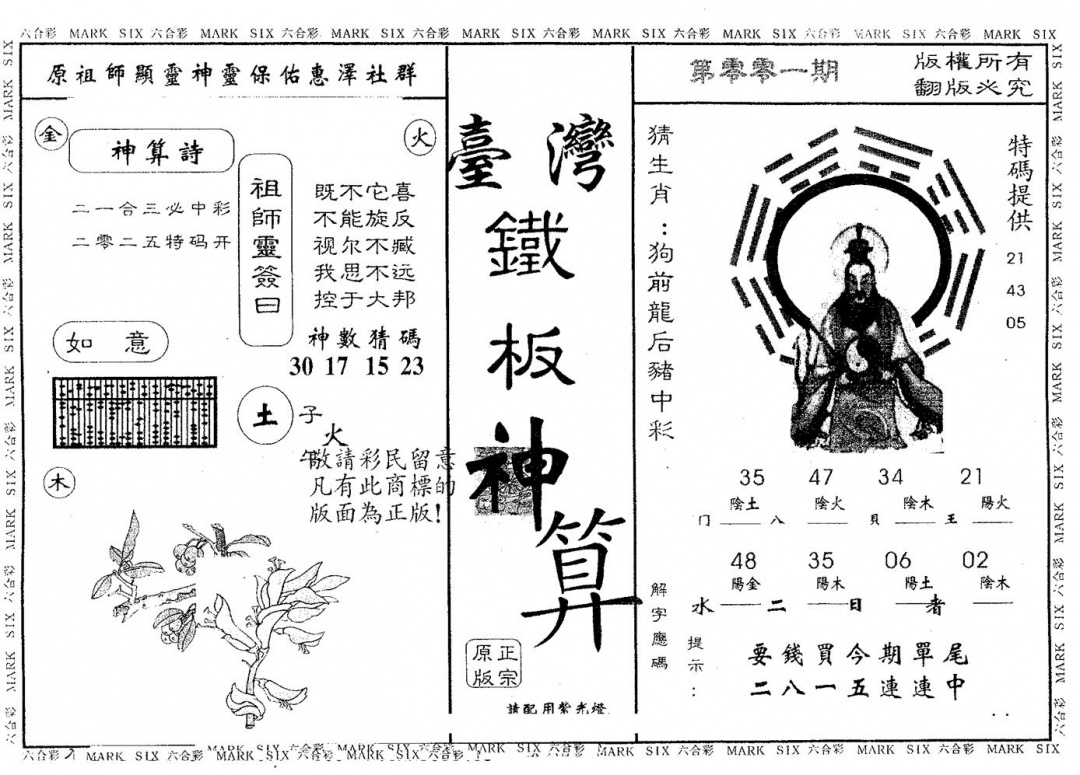 六合彩 MARK SIX 六合彩 MARK SIX 六合彩 MARK SIX 六合彩 MARK SIX 六合彩 MARK SIX 六合彩 MARK SIX 六合彩 MARK SIX 六合彩 MARK SIX
原祖師顯靈神靈保佑惠澤社群
金
神算詩
火
二一合三必中彩
二零二五特码开
祖師靈簽曰
既不它喜
不能旋反
视尔不臧
我思不远
控于大邦
神數猜碼
30 17 15 23
如意
土
子
火
午
敬請彩民留意
凡有此商標的
版面為正版!
木
臺灣
鐵
板
神
算
正宗
原版
請配用紫光燈
第零零一期
版權所有
翻版必究
猜生肖:狗前龍后豬中彩
特碼提供
21
43
05
35 47 34 21
陰土 陰火 陰木 陽火
门 八 貝 王
48 35 06 02
陽金 陽木 陽土 陰木
水 二 日 者
解字應碼
提示:
要錢買今期單尾
二八一五連連中
六合彩 MARK SIX 六合彩 MARK SIX 六合彩 MARK SIX 六合彩 MARK SIX